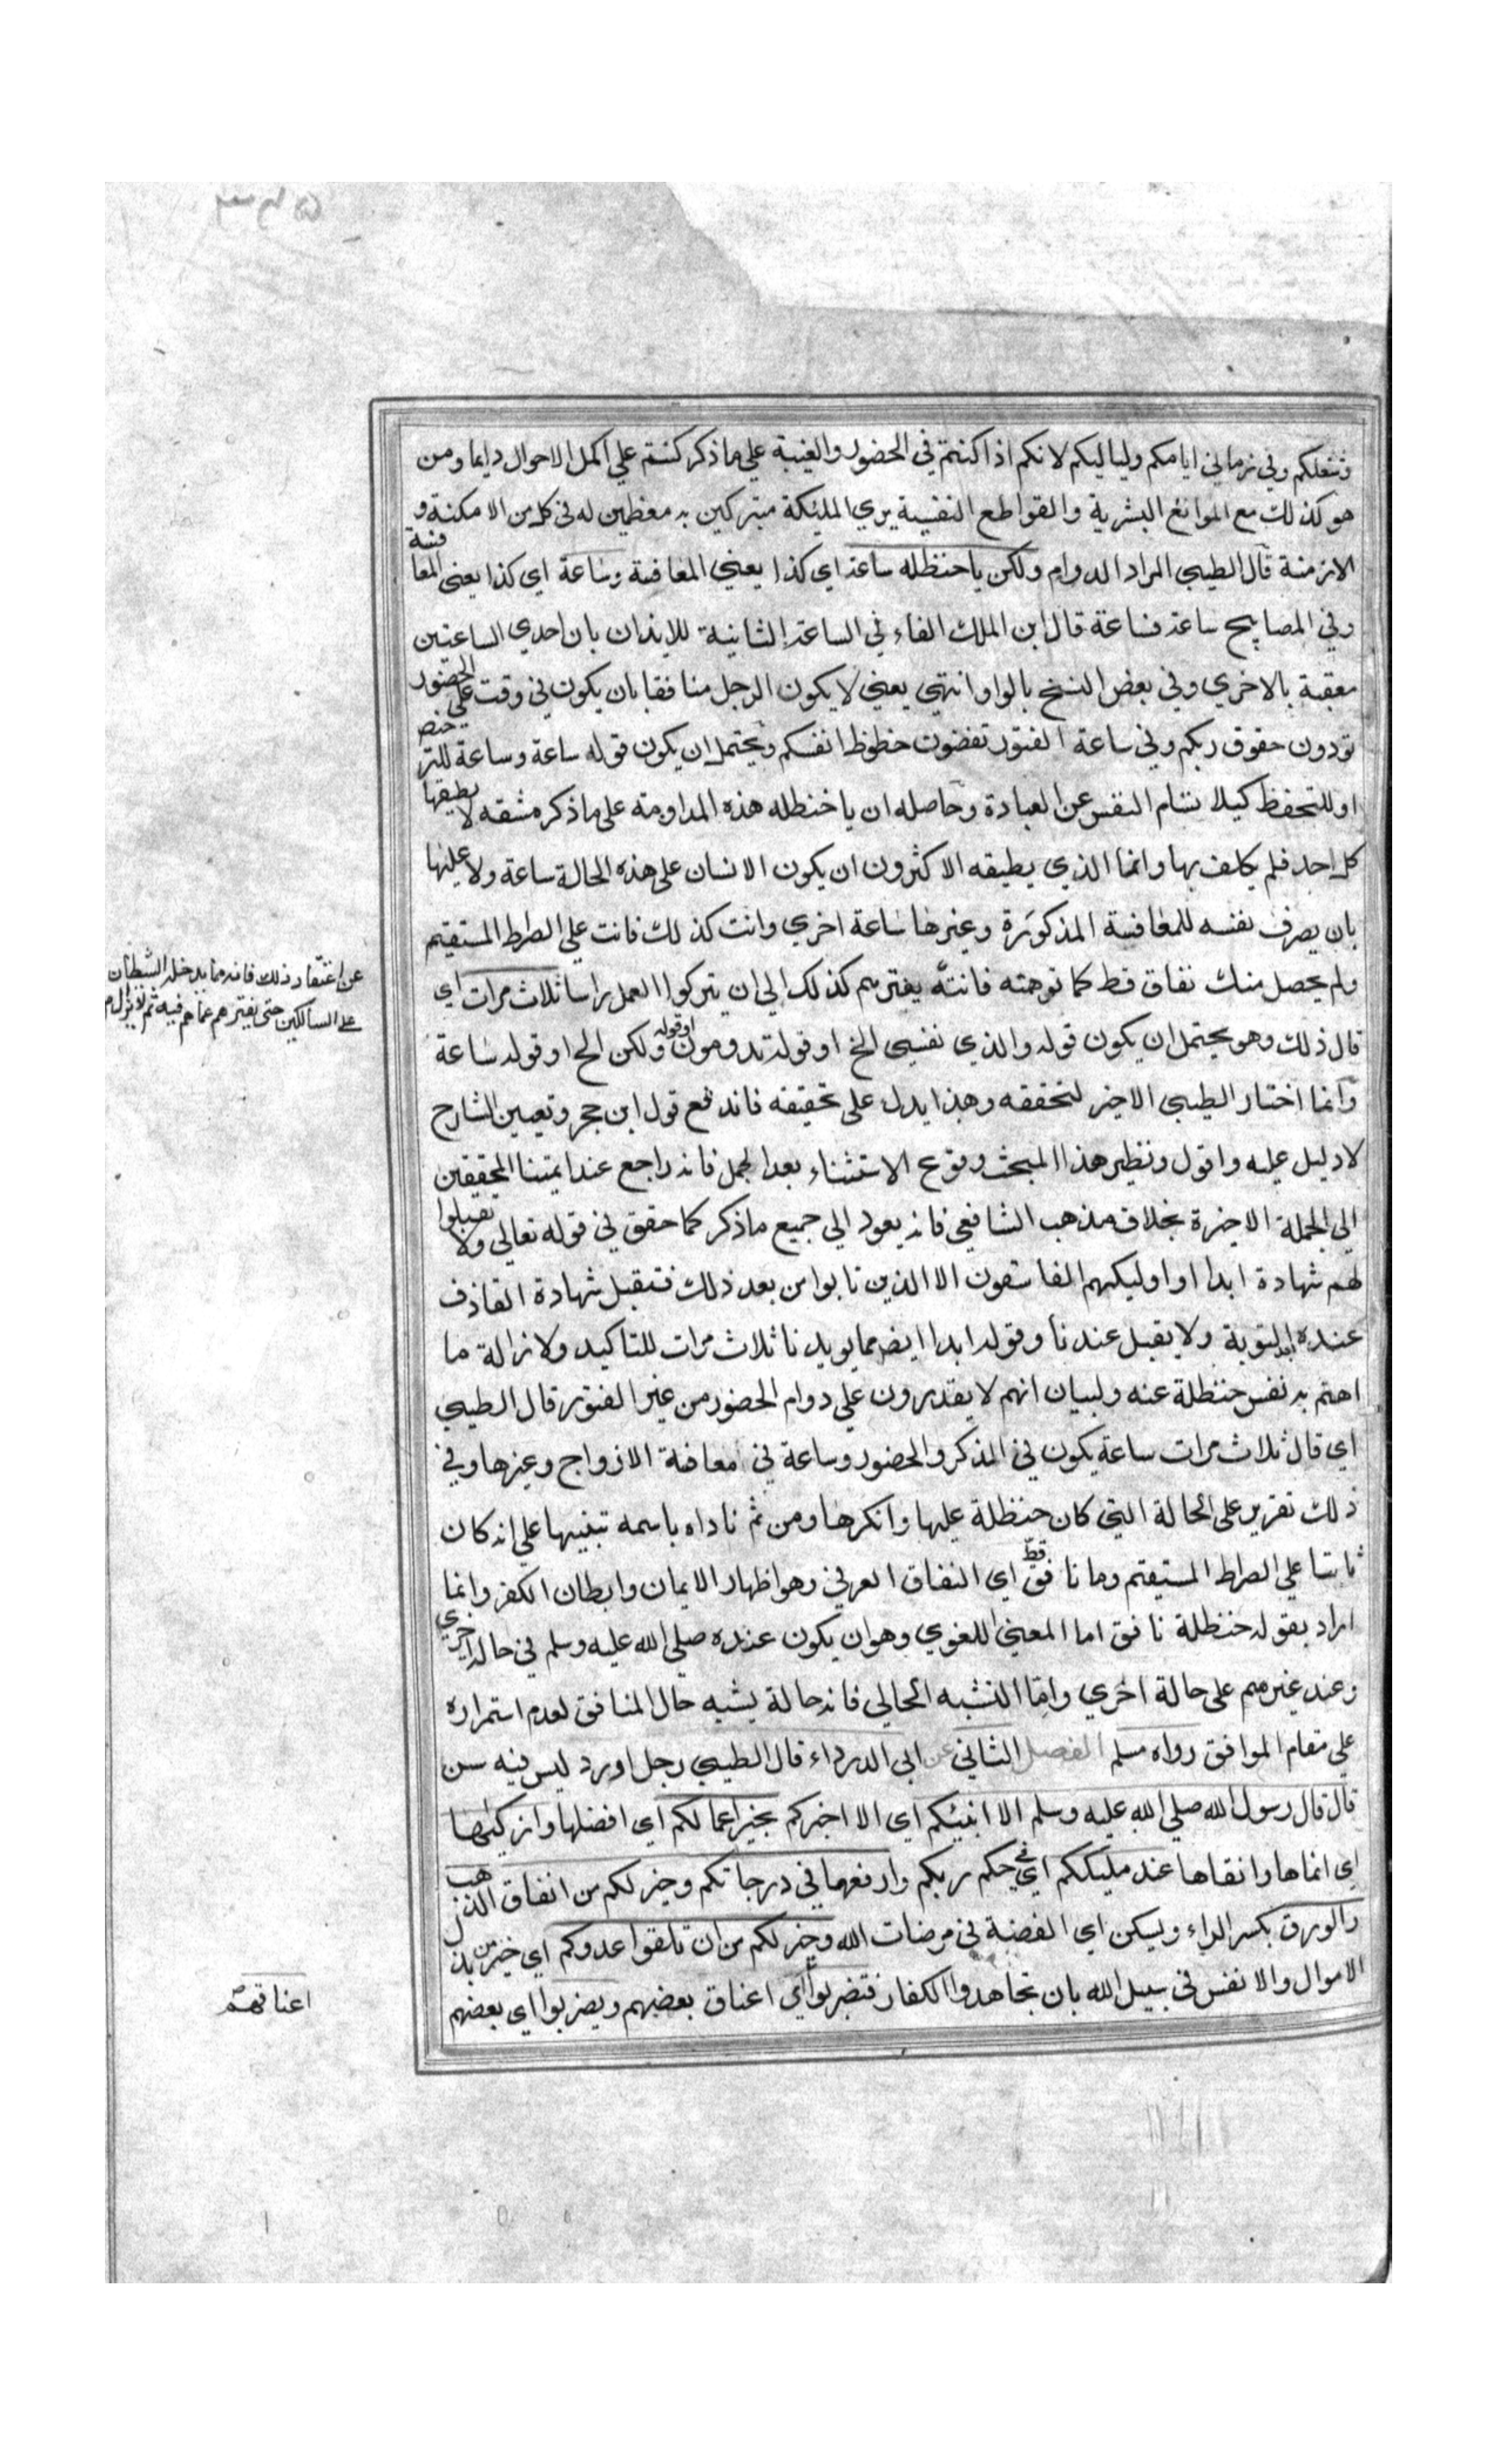 وشغلكم وفي زماني ايامكم ولياليكم لانكم اذا كنتم في الحضور والغيبة علي ما ذكر كنتم علي اكمل الاحوال دايما ومن
هو كذلك مع الموانع البشرية والقواطع النفسية يري الملئكة متبركين به معظمين له في كل من الامكنة و
الازمنة قال الطيبي المراد الدوام ولكن يا حنظله ساعة اي كذا يعني المعافسة وساعة اي كذا يعني المعافسة
وفي المصابيح ساعة فساعة قال ابن الملك الفاء في الساعة الثانية للايذان بان احدي الساعتين
معقبة بالاخري وفي بعض النسخ بالواو انتهي يعني لا يكون الرجل منافقا بان يكون في وقت علي الحضور
تودون حقوق ربكم وفي ساعة الفتور تقضون حظوظ انفسكم ويحتمل ان يكون قوله ساعة وساعة للترخص
او للتحفظ كيلا تسام النفس عن العبادة وحاصله ان يا حنظله هذه المداومة علي ما ذكر مشقه لا يطيقها
كل احد فلم يكلف بها وانما الذي يطيقه الاكثرون ان يكون الانسان علي هذه الحالة ساعة ولا عليها
بان يصرف نفسه للمعافسة المذكورة وغيرها ساعة اخري وانت كذلك فانت علي الصراط المستقيم
ولم يحصل منك نفاق قط كما توهمته فانته يفترهم كذلك الي ان يتركوا العمل راسا ثلاث مرات اي
عن اعتقاد ذلك فانه مما يدخله الشيطان
علي السالكين حتي يفترهم عما هم فيه ثم لا يزال
قال ذلك وهو يحتمل ان يكون قوله والذي نفسي الخ او قوله تدومون او قوله ولكن الخ او قوله ساعة
وانما اختار الطيبي الاخير لتحققه وهذا يدل علي تحقيقه فاندفع قول ابن حجر وتعيين الشارح
لا دليل عليه واقول ونظير هذا المبحث وقوع الاستثناء بعد الجمل فانه راجع عند ايمتنا المحققين
الي الجملة الاخيرة بخلاف مذهب الشافعي فانه يعود الي جميع ما ذكر كما حقق في قوله تعالي ولا تقبلوا
لهم شهادة ابدا واوليكهم الفاسقون الا الذين تابوا من بعد ذلك فتقبل شهادة القاذف
عنده بعد التوبة ولا يقبل عندنا وقوله ابدا ايضا مما يويدنا ثلاث مرات للتاكيد ولازالة ما
اهتم به نفس حنظلة عنه ولبيان انهم لا يقدرون علي دوام الحضور من غير الفتور قال الطيبي
اي قال ثلاث مرات ساعة يكون في الذكر والحضور وساعة في معافسة الازواج وغيرها وفي
ذلك تقرير علي الحالة التي كان حنظلة عليها وانكرها ومن ثم ناداه باسمه تنبيها علي انه كان
ثابتا علي الصراط المستقيم وما نافق قط اي النفاق العرفي وهو اظهار الايمان وابطان الكفر وانما
اراد بقوله حنظلة نافق اما المعني اللغوي وهو ان يكون عنده صلي الله عليه وسلم في حالة اخري
وعند غيرهم علي حالة اخري واما التشبه الحالي فانه حالة يشبه حال المنافق لعدم استمراره
علي مقام الموافق رواه مسلم الفصل الثاني عن ابي الدرداء قال الطيبي رجل اورد ليس فيه سن
قال قال رسول الله صلي الله عليه وسلم الا انبئكم اي الا اخبركم بخير اعمالكم اي افضلها وازكيها
اي انماها وانقاها عند مليككم اي في حكم ربكم وارفعها في درجاتكم وخير لكم من انفاق الذهب
والورق بكسر الراء ويسكن اي الفضة في مرضات الله وخير لكم من ان تلقوا عدوكم اي خير من بذل
الاموال والانفس في سبيل الله بان تجاهدوا الكفار فتضربوا اي اعناق بعضهم ويضربوا اي بعضهم
اعناقهم